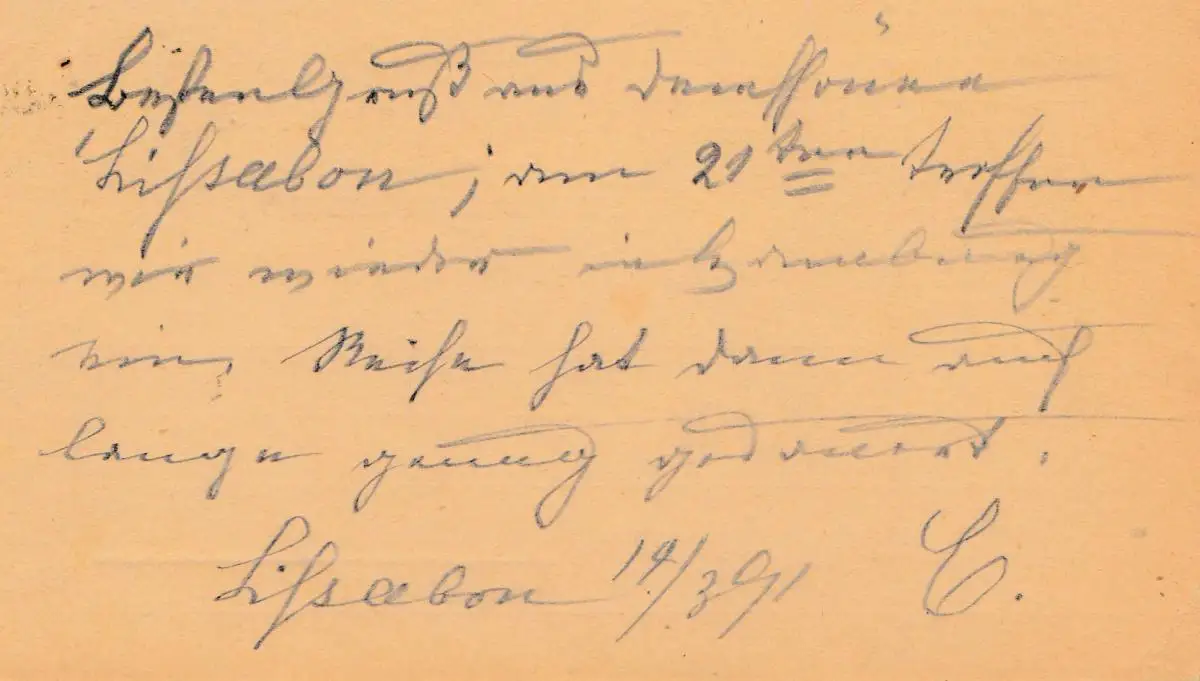 Besten Gruß aus dem schönen
Lissabon, am 21ten treffen
wir wieder in Hamburg
ein, Reise hat dann auch
lange genug gedauert.
Lissabon 14/3 91 C.